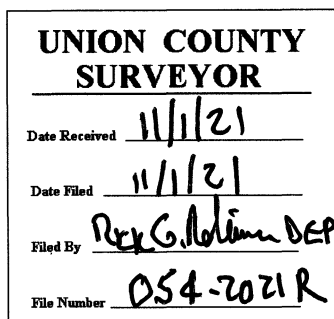 UNION COUNTY
SURVEYOR
Date Received 11/1/21
Date Filed 11/1/21
Filed By Rick G. DEP
File Number 054-2021R